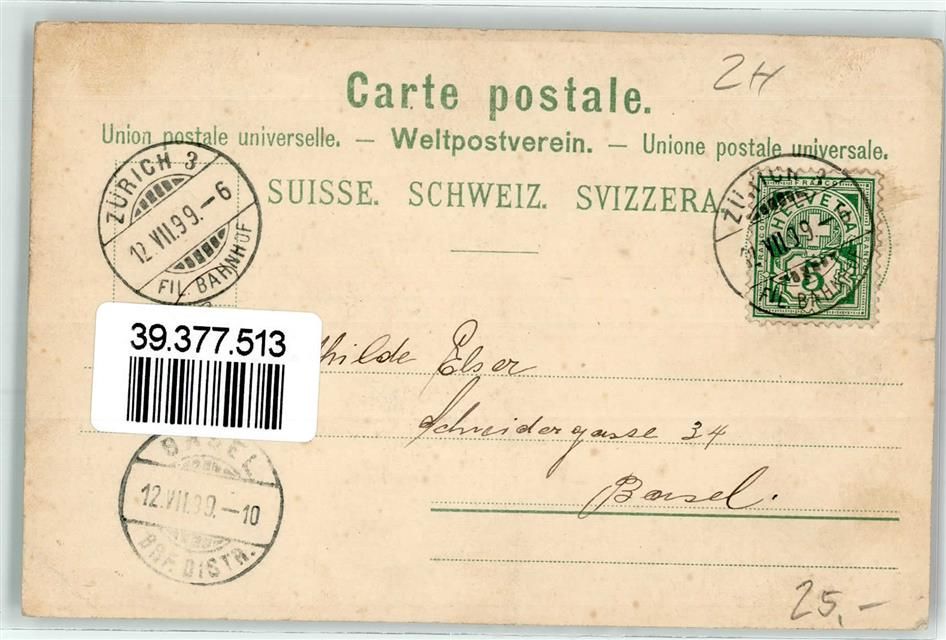 2H
Carte postale.
Union postale universelle. — Weltpostverein. — Unione postale universale.
SUISSE. SCHWEIZ. SVIZZERA.
ZÜRICH 3
12.VII.99.-6
FIL. BAHNHOF
FRANCO
HELVETIA
5
FIL. BAHNHOF
39.377.513
thilde Elser
Schneidergasse 34
Basel.
BASEL
12.VII.99.-10
BRF. DISTR.
25,-